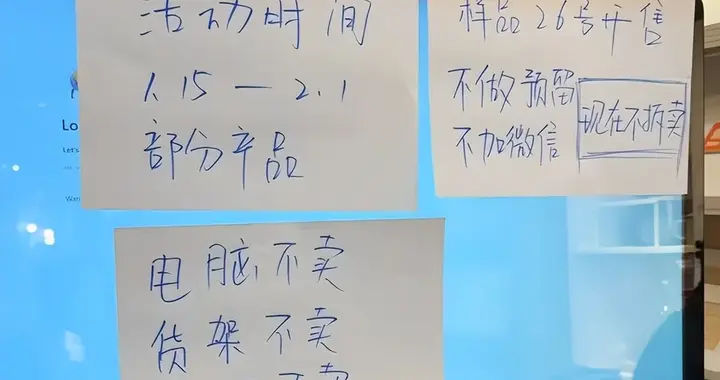 活动时间
1.15—2.1
部分产品
样品26号开售
不做预留
不加微信
现在不拆卖
电脑不卖
货架不卖
不卖
Lo